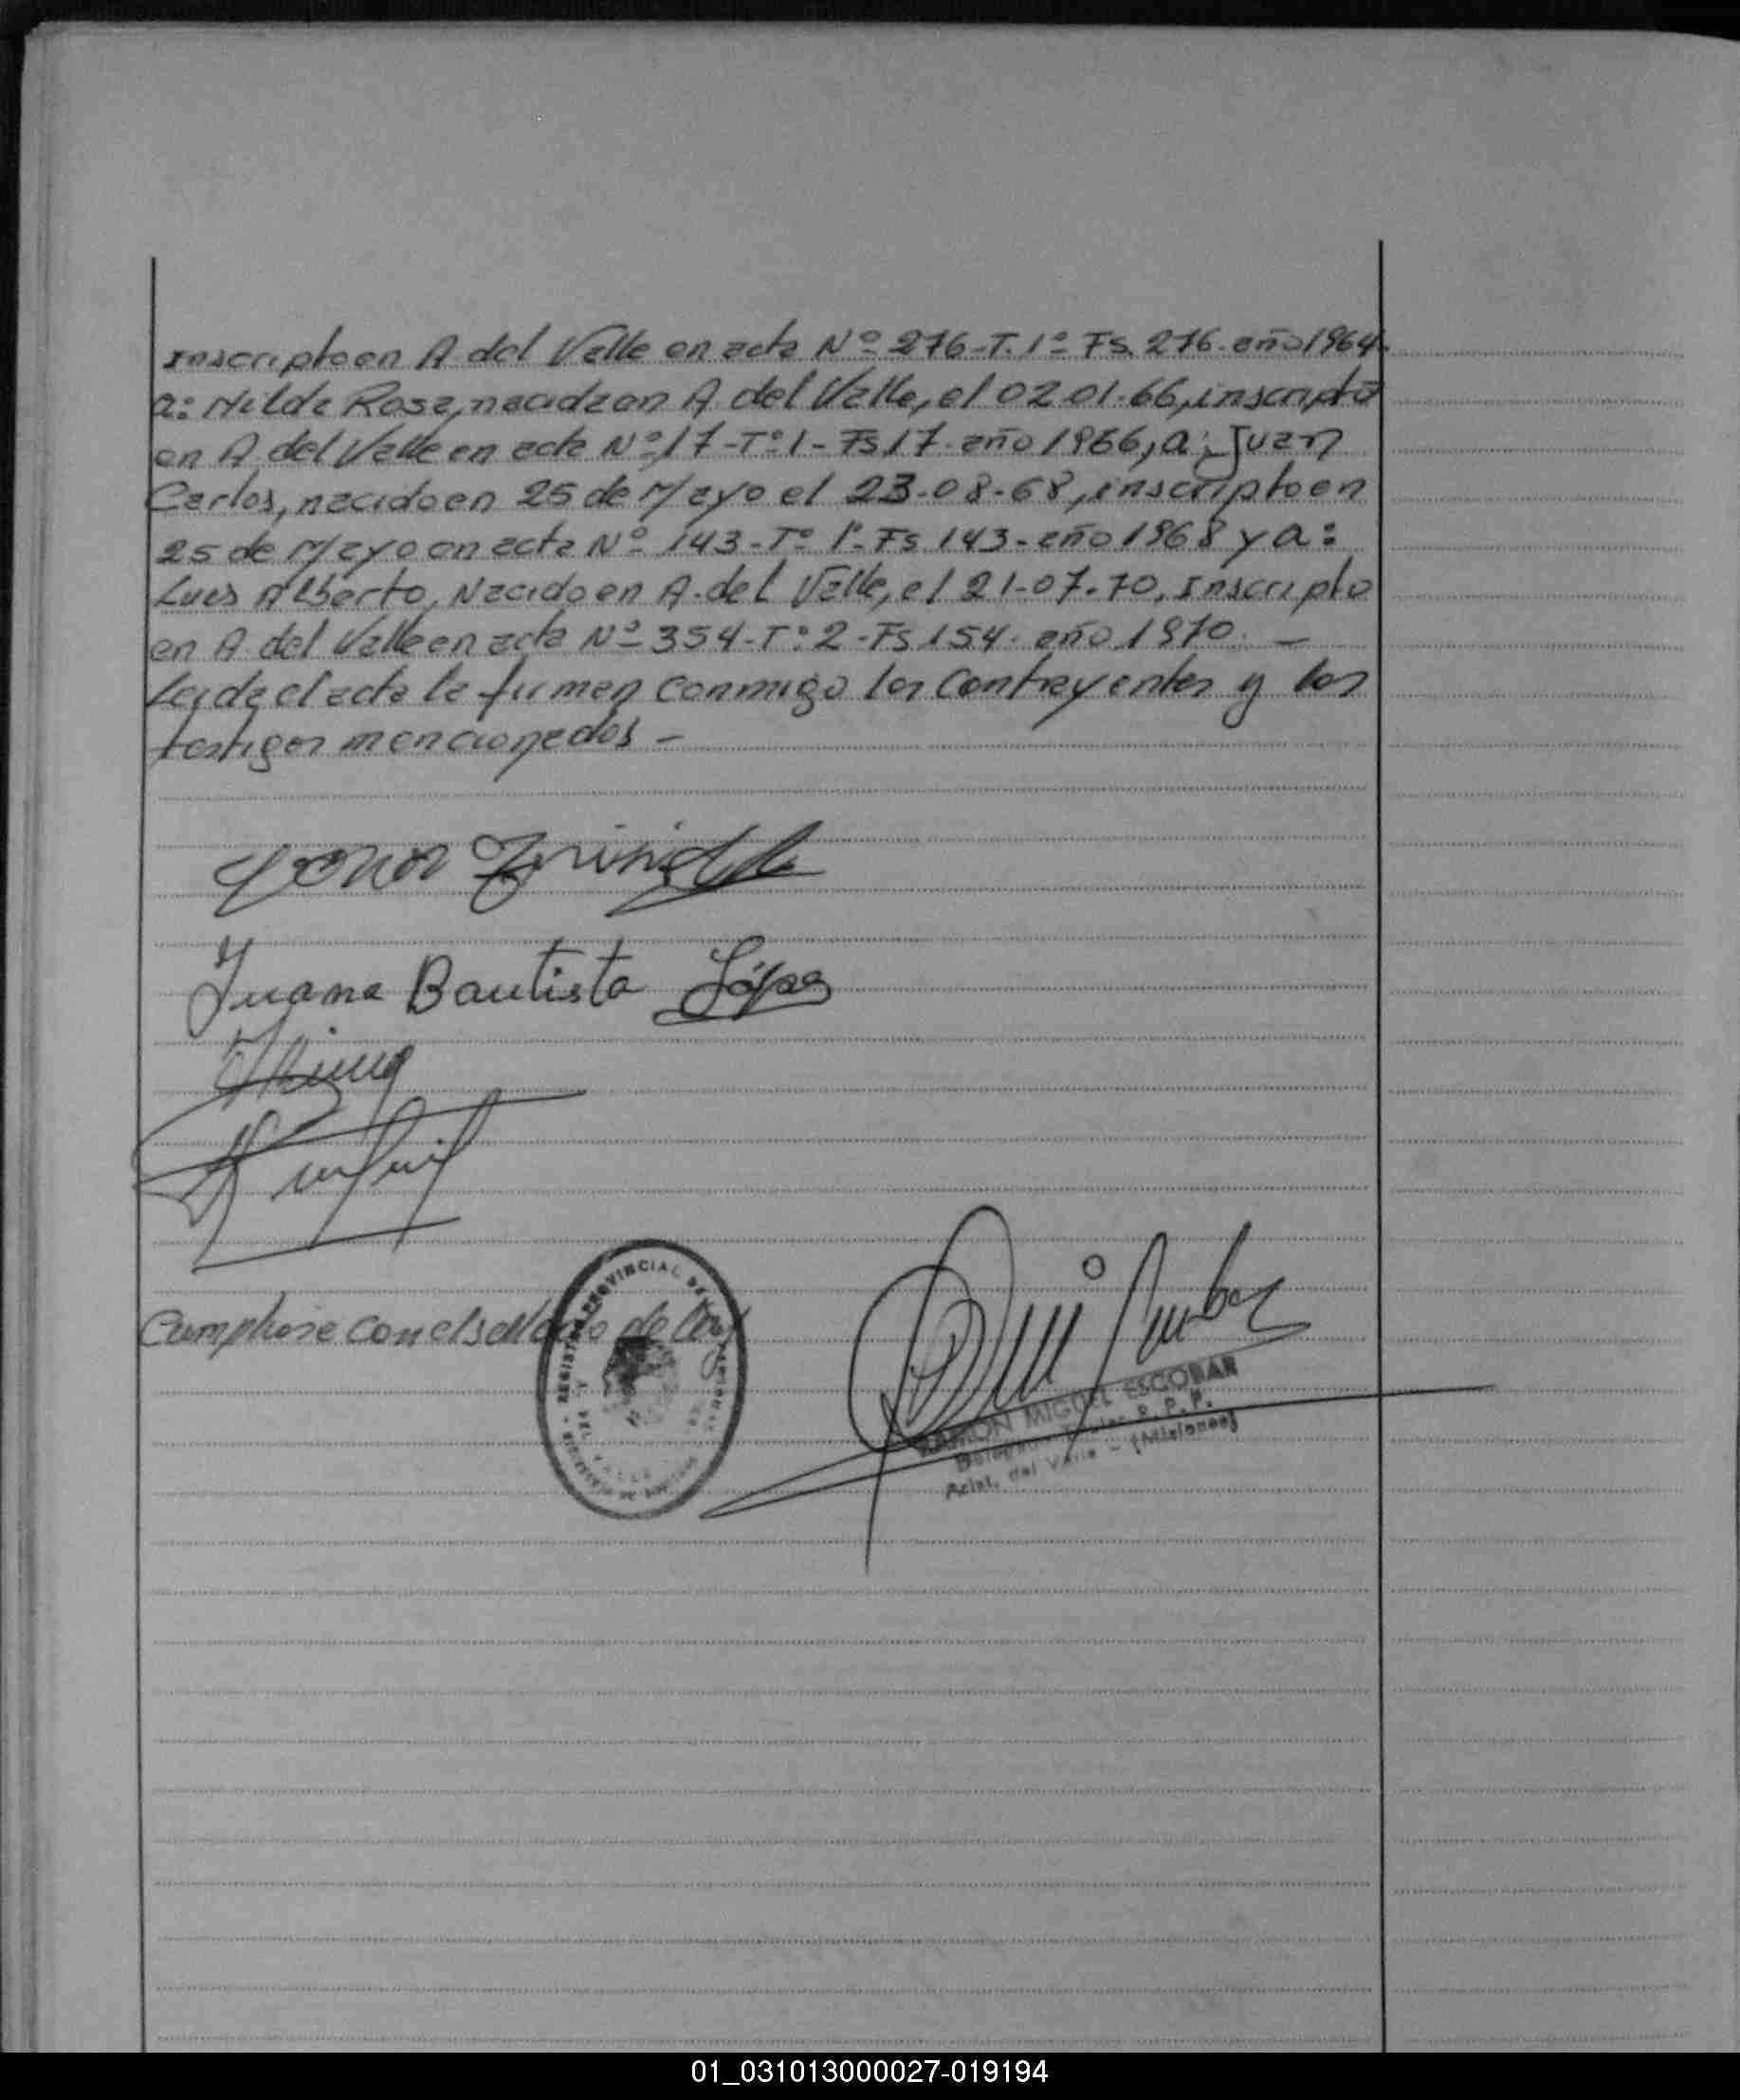 Inscripto en A del Valle en acta Nº 276-T. 1º Fs. 276. año 1964.
a: Nilda Rosa, nacida en A. del Valle, el 02.01.66, inscripta
en A. del Valle en acta Nº 17-Tº 1-Fs 17. año 1966, a: Juan
Carlos, nacido en 25 de Mayo el 23-08-68, inscripto en
25 de Mayo en acta Nº 143-Tº 1º-Fs 143-año 1968 y a:
Luis Alberto, Nacido en A. del Valle, el 21-07.70, Inscripto
en A del Valle en acta Nº 354-Tº 2-Fs 154. año 1970. —
Leida el acta la firman conmigo los contrayentes y los
testigos mencionados —
Juana Bautista López
Cumpliose con el sellado de Ley
REGISTRO PROVINCIAL DE
DEL VALLE
RAMON MIGUEL ESCOBAR
Delegado Titular R. P. P.
Arist. del Valle - (Misiones)
01_031013000027-019194